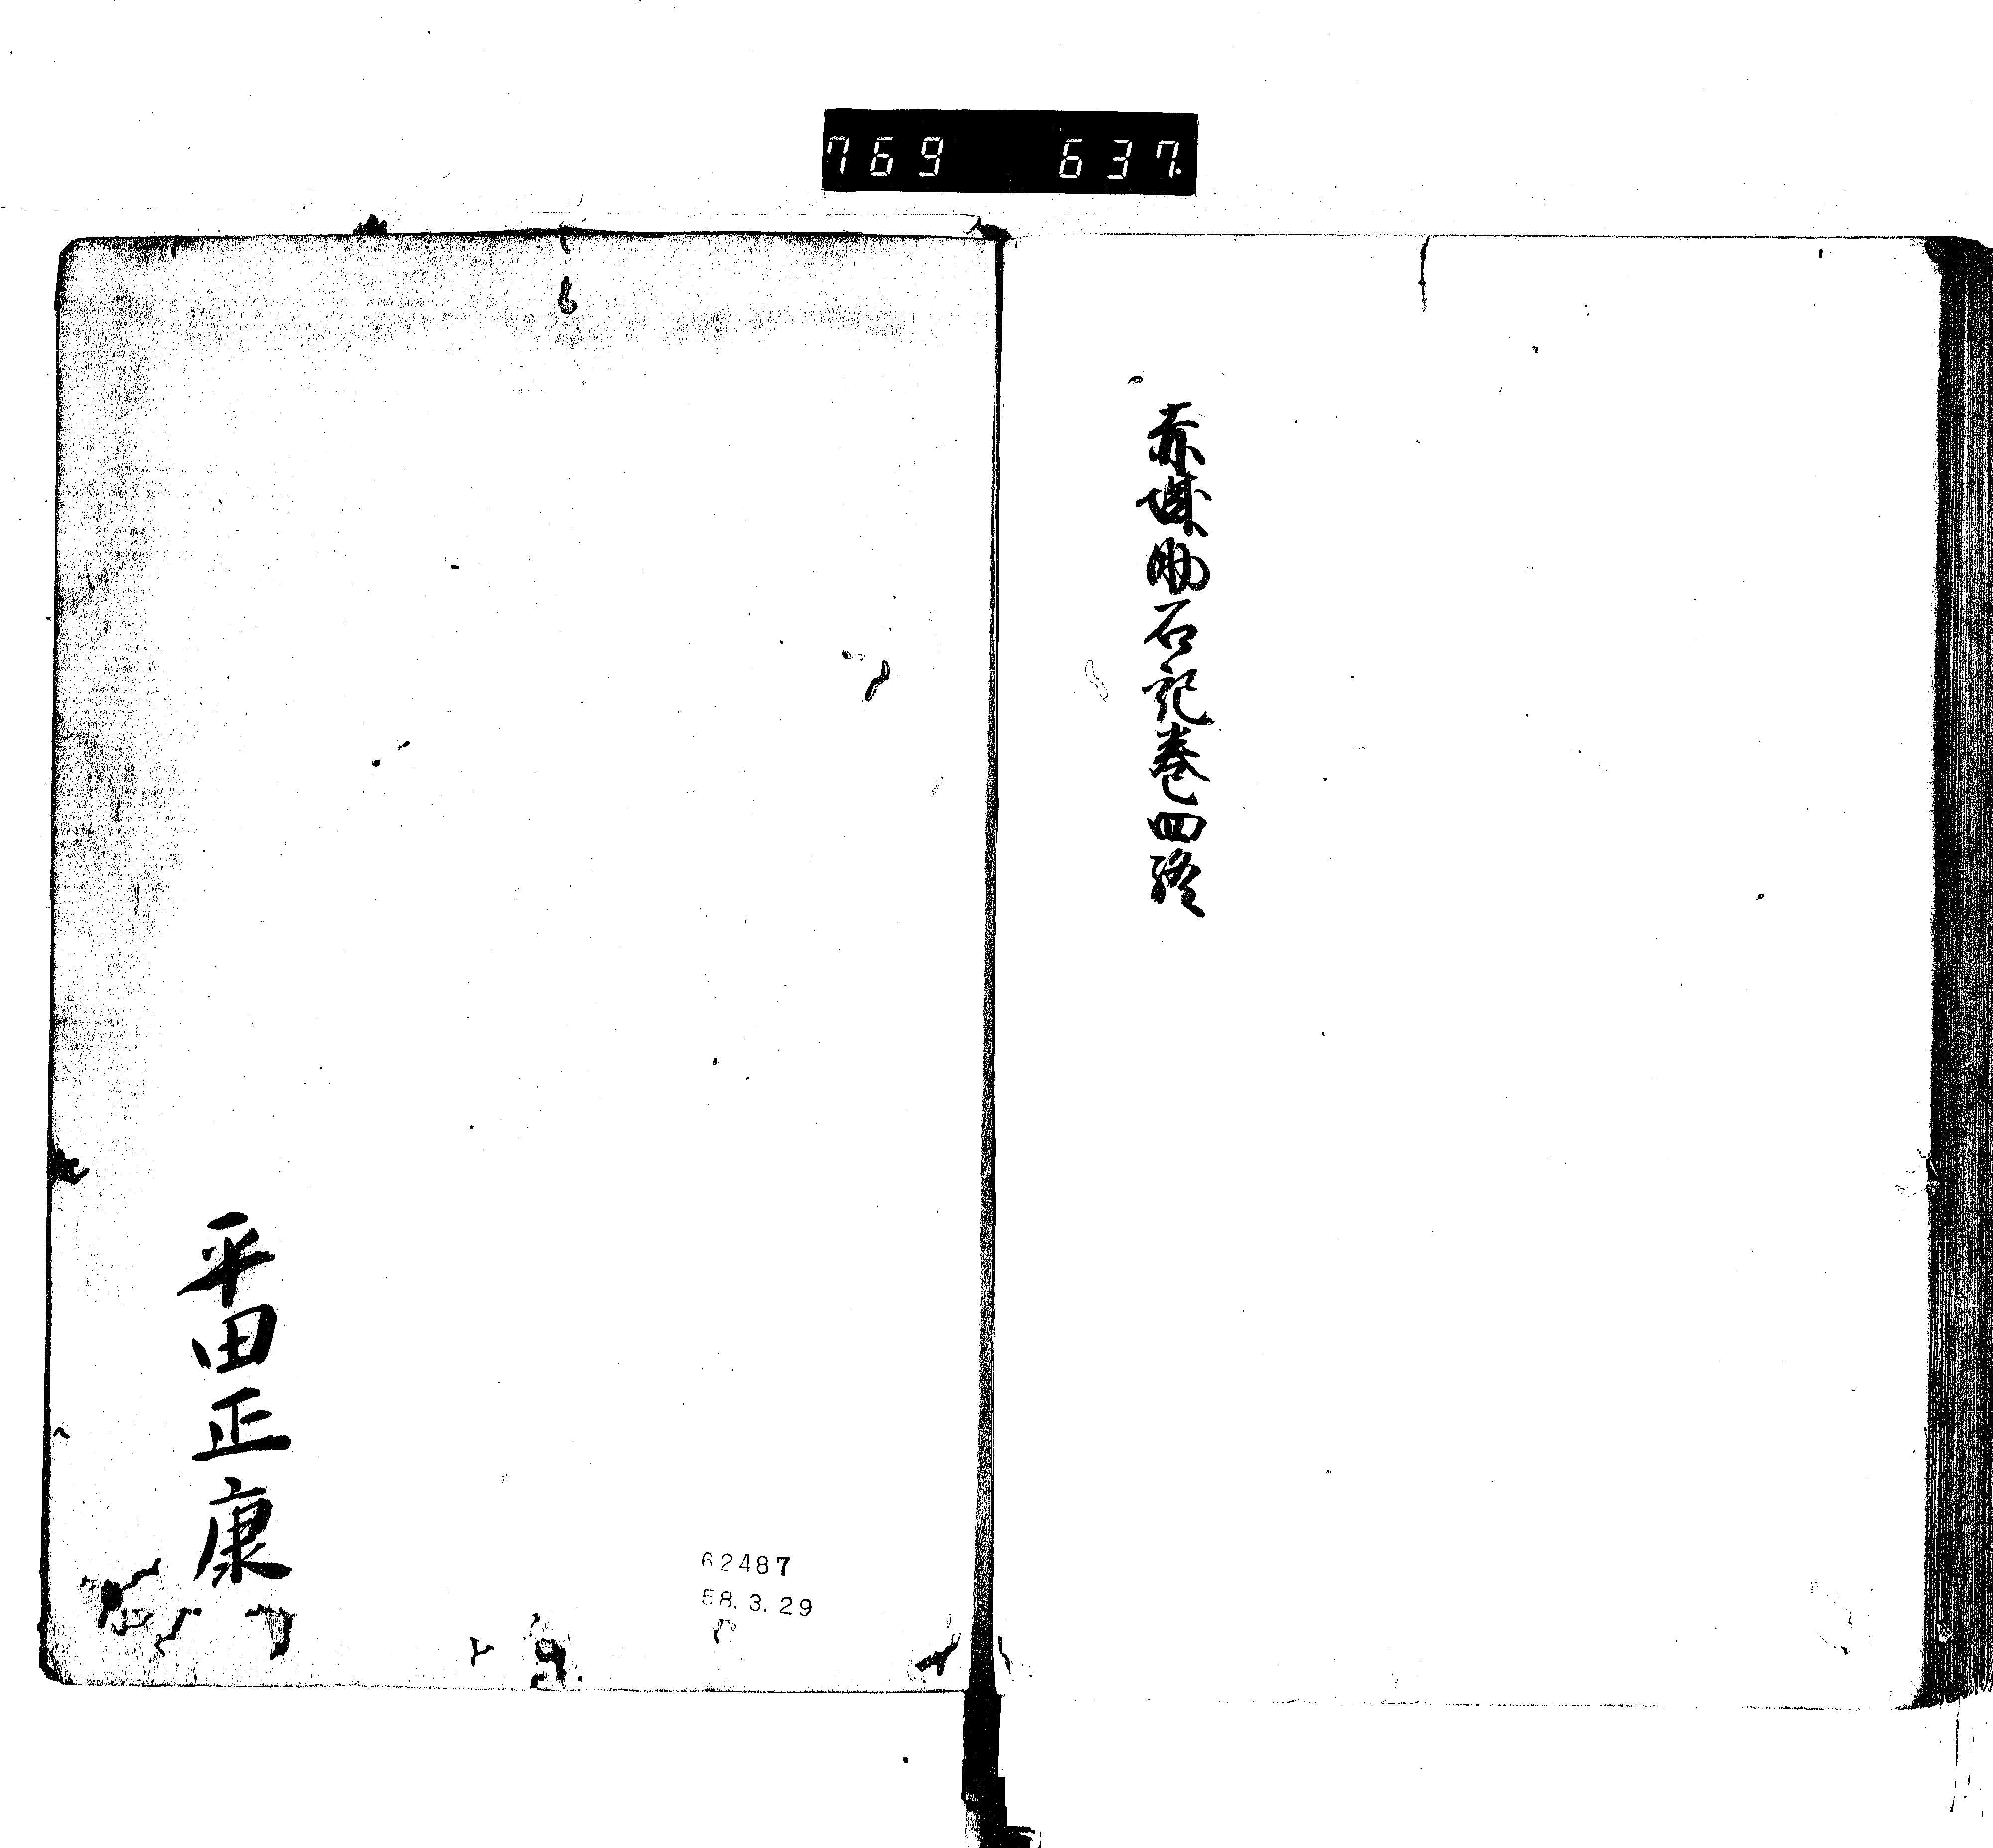 769 637.
赤城助石記巻四終
平田正康
62487
58.3.29